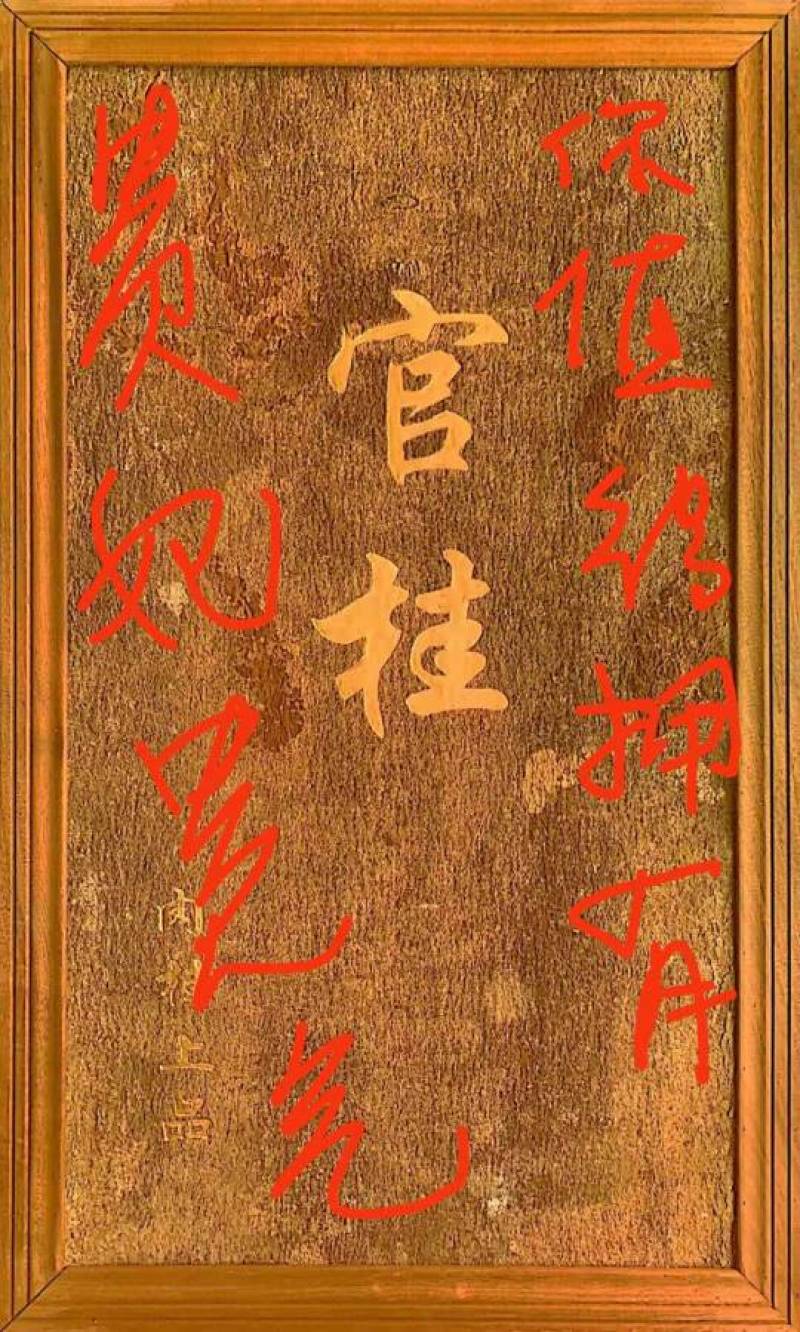 你值得拥有
官桂
贵妃
肉桂上品